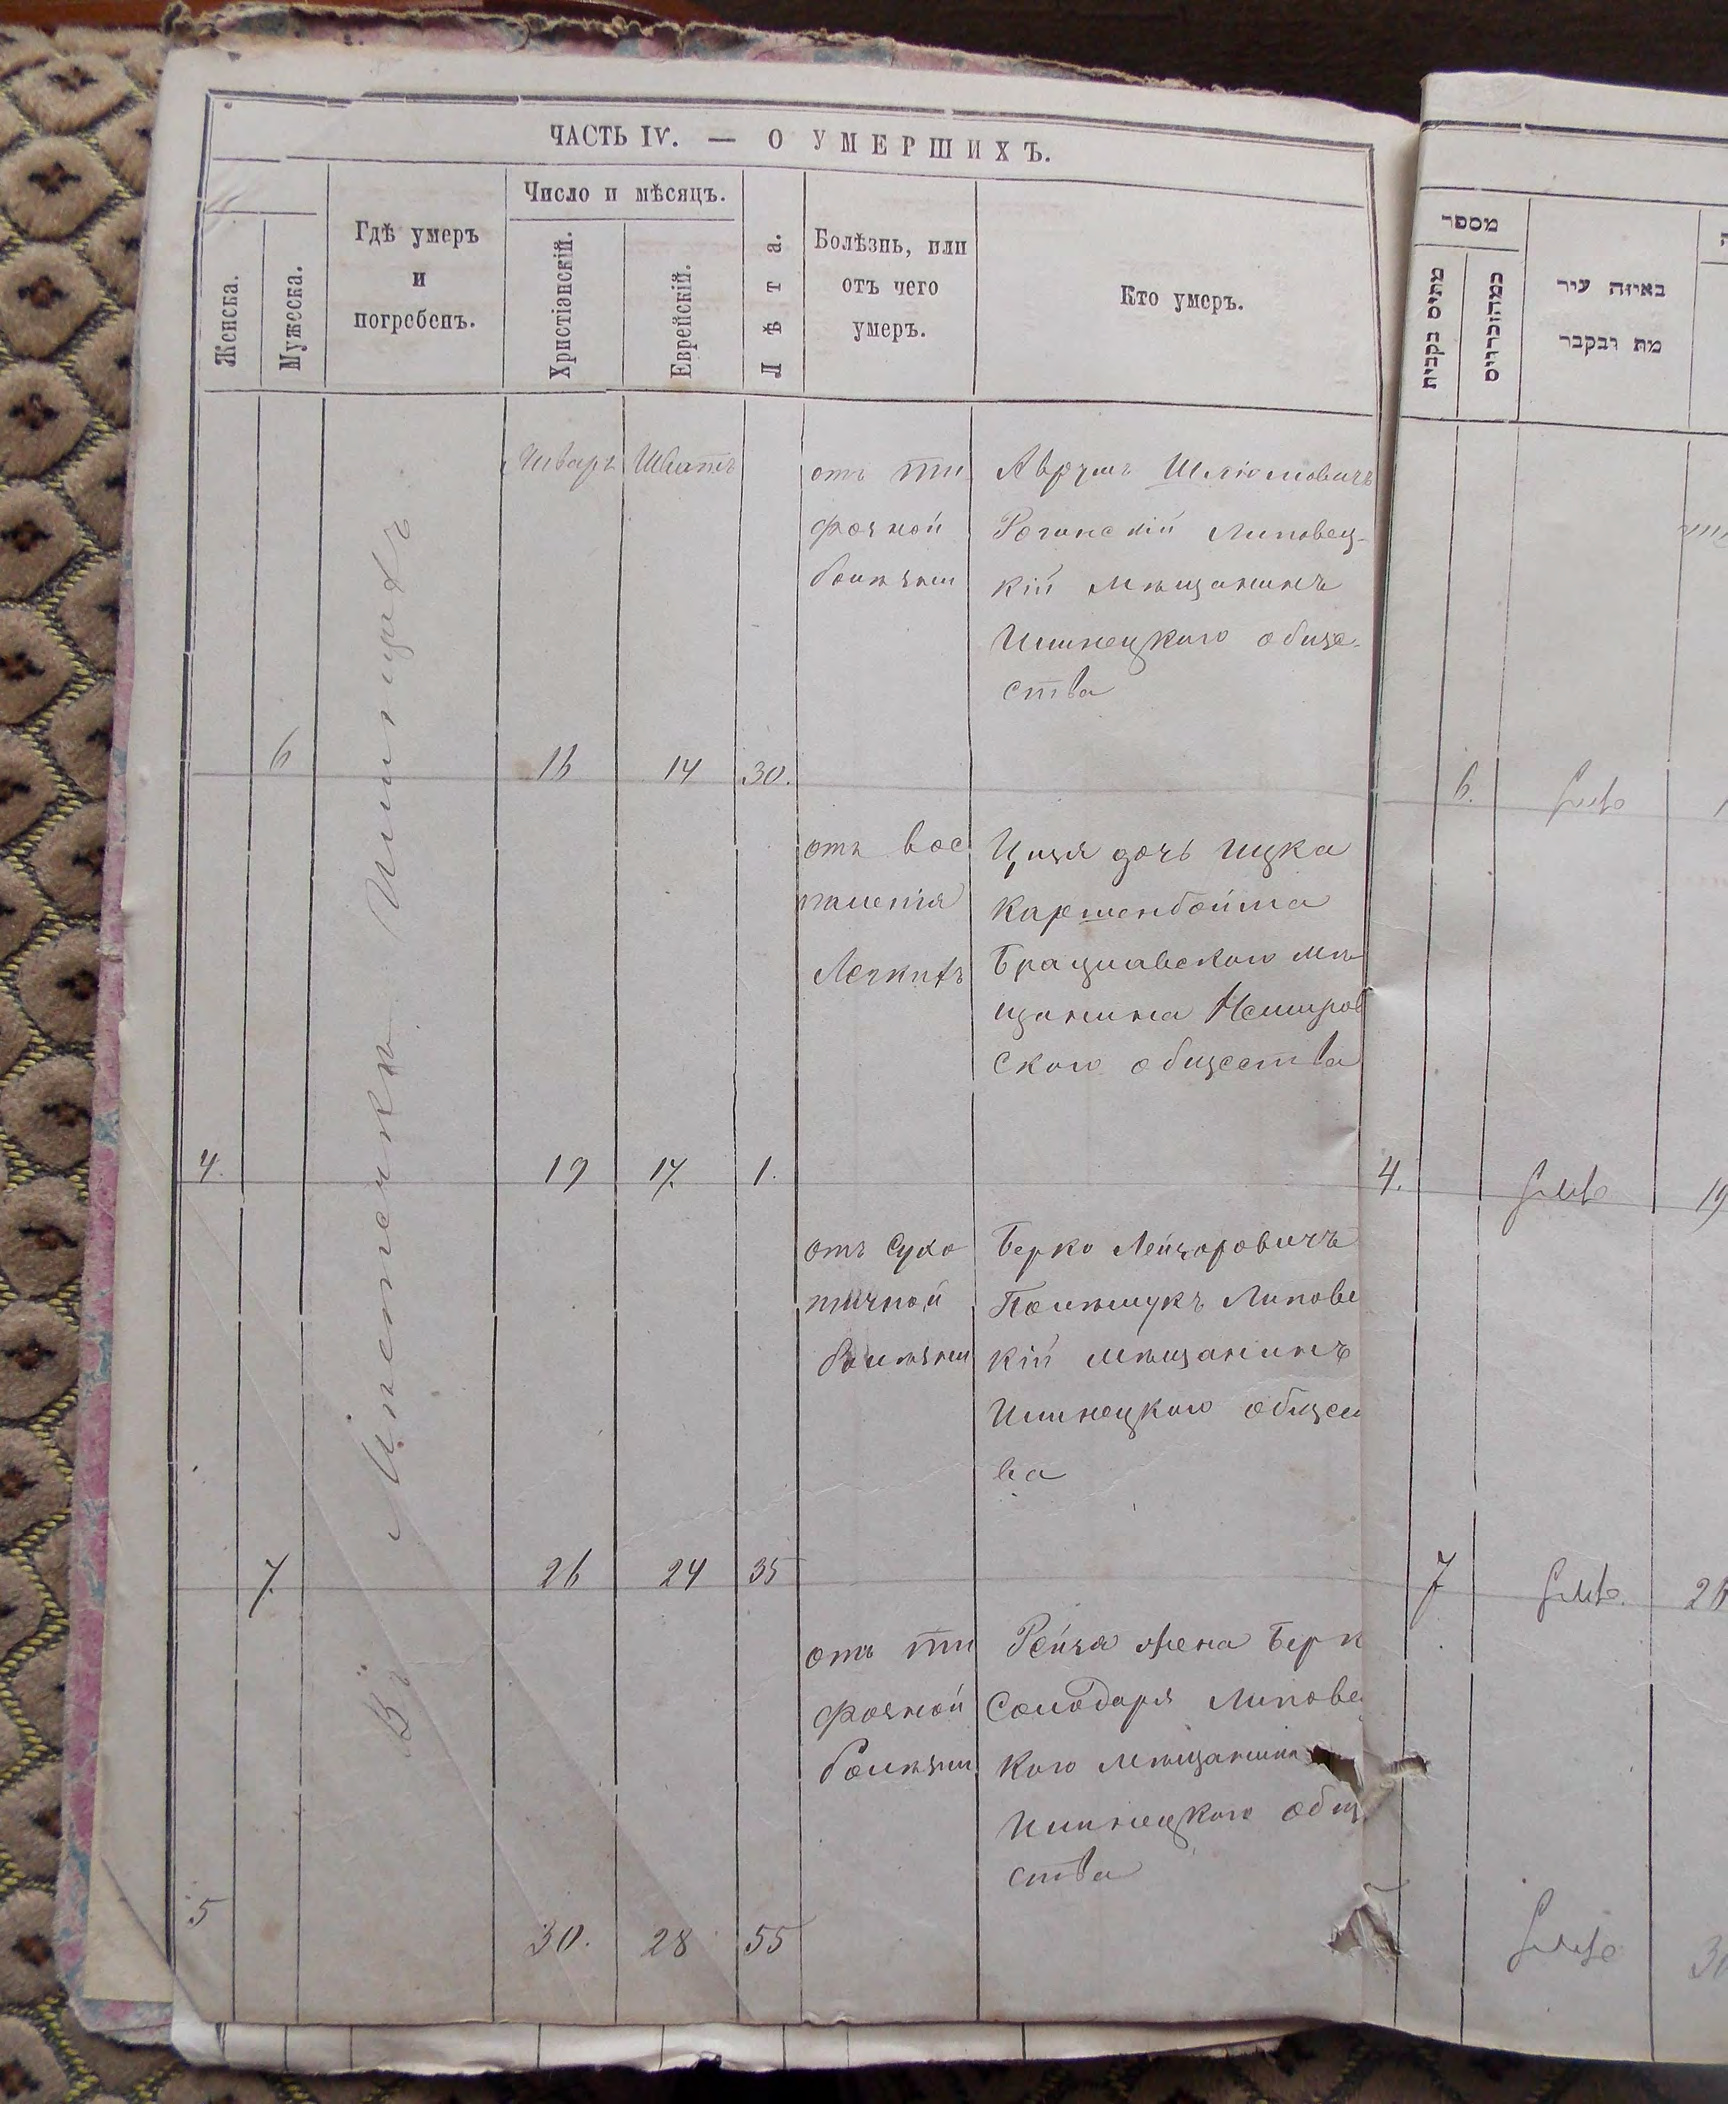 ЧАСТЬ IV. — О УМЕРШИХЪ.
Женска.
Мужеска.
Гдѣ умеръ
и
погребенъ.
Число и мѣсяцъ.
Христіанскій.
Еврейскій.
Лѣта.
Болѣзнь, или
отъ чего
умеръ.
Кто умеръ.
Въ Мѣстечкѣ Илинцахъ
Январь Шватъ
отъ ти
фозной
болѣзни
Аврумъ Шліомовичъ
Рогинскій Липовец-
кій мѣщанинъ
Илинецкого обще-
ства
6 16 14 30.
отъ вос
паленія
Легкихъ
Ципя дочь Ицка
Каршенбойма
Брацлавского мѣ
щанина Немиров
ского общества
4. 19 17. 1.
отъ Сухо
тичной
болѣзни
Берко Лейзоровичъ
Полѣщукъ Липове
кій мѣщанинъ
Илинецкого общест
ва
7. 26 24 35
отъ ти
фозной
болѣзни
Рейзя жена Берк
Солодаря Липове
кого мѣщанина
Илинецкого общ
ства
5 30. 28 55
מספר
מתים נקבות
מהזכרים
באיזה עיר
מת ונקבר
6.
4. 19
7 26
30